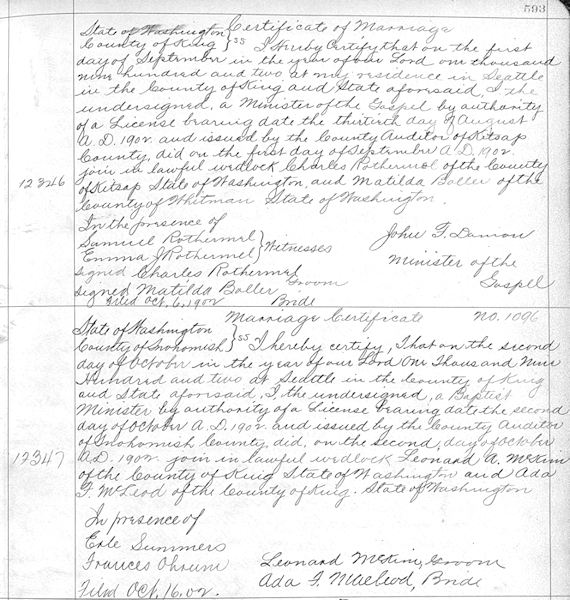 593
State of Washington Certificate of Marriage
County of King } ss I Hereby Certify that on the first
day of September in the year of our Lord one thousand
nine hundred and two, at my residence in Seattle
in the County of King and State aforesaid, I the
undersigned, a Minister of the Gospel by authority
of a License bearing date the thirtieth day of August
A.D. 1902 and issued by the County Auditor of Kitsap
County, did on the first day of September A.D. 1902
join in lawful wedlock Charles Rothermel of the County
12346 of Kitsap State of Washington, and Matilda Boller of the
County of Whitman State of Washington.
In the presence of
Samuel Rothermel } Witnesses John F. Damon
Emma J Rothermel Minister of the
signed Charles Rothermel Groom Gospel
signed Matilda Boller Bride
Filed Oct. 6, 1902
Marriage Certificate No. 1096
State of Washington
County of Snohomish } ss I hereby certify, that on the second
day of October in the year of our Lord One Thousand Nine
Hundred and two at Seattle in the County of King
and State aforesaid, I, the undersigned, a Baptist
Minister by authority of a License bearing date the second
day of October A.D. 1902 and issued by the County Auditor
of Snohomish County, did, on the second, day of October
12347 A.D. 1902 join in lawful wedlock Leonard A. McKim
of the County of King State of Washington and Ada
F. McLeod of the County of King. State of Washington
In presence of
Erle Summers
Frances Leonard McKim, Groom
Filed Oct. 16. 02. Ada F. Macleod, Bride